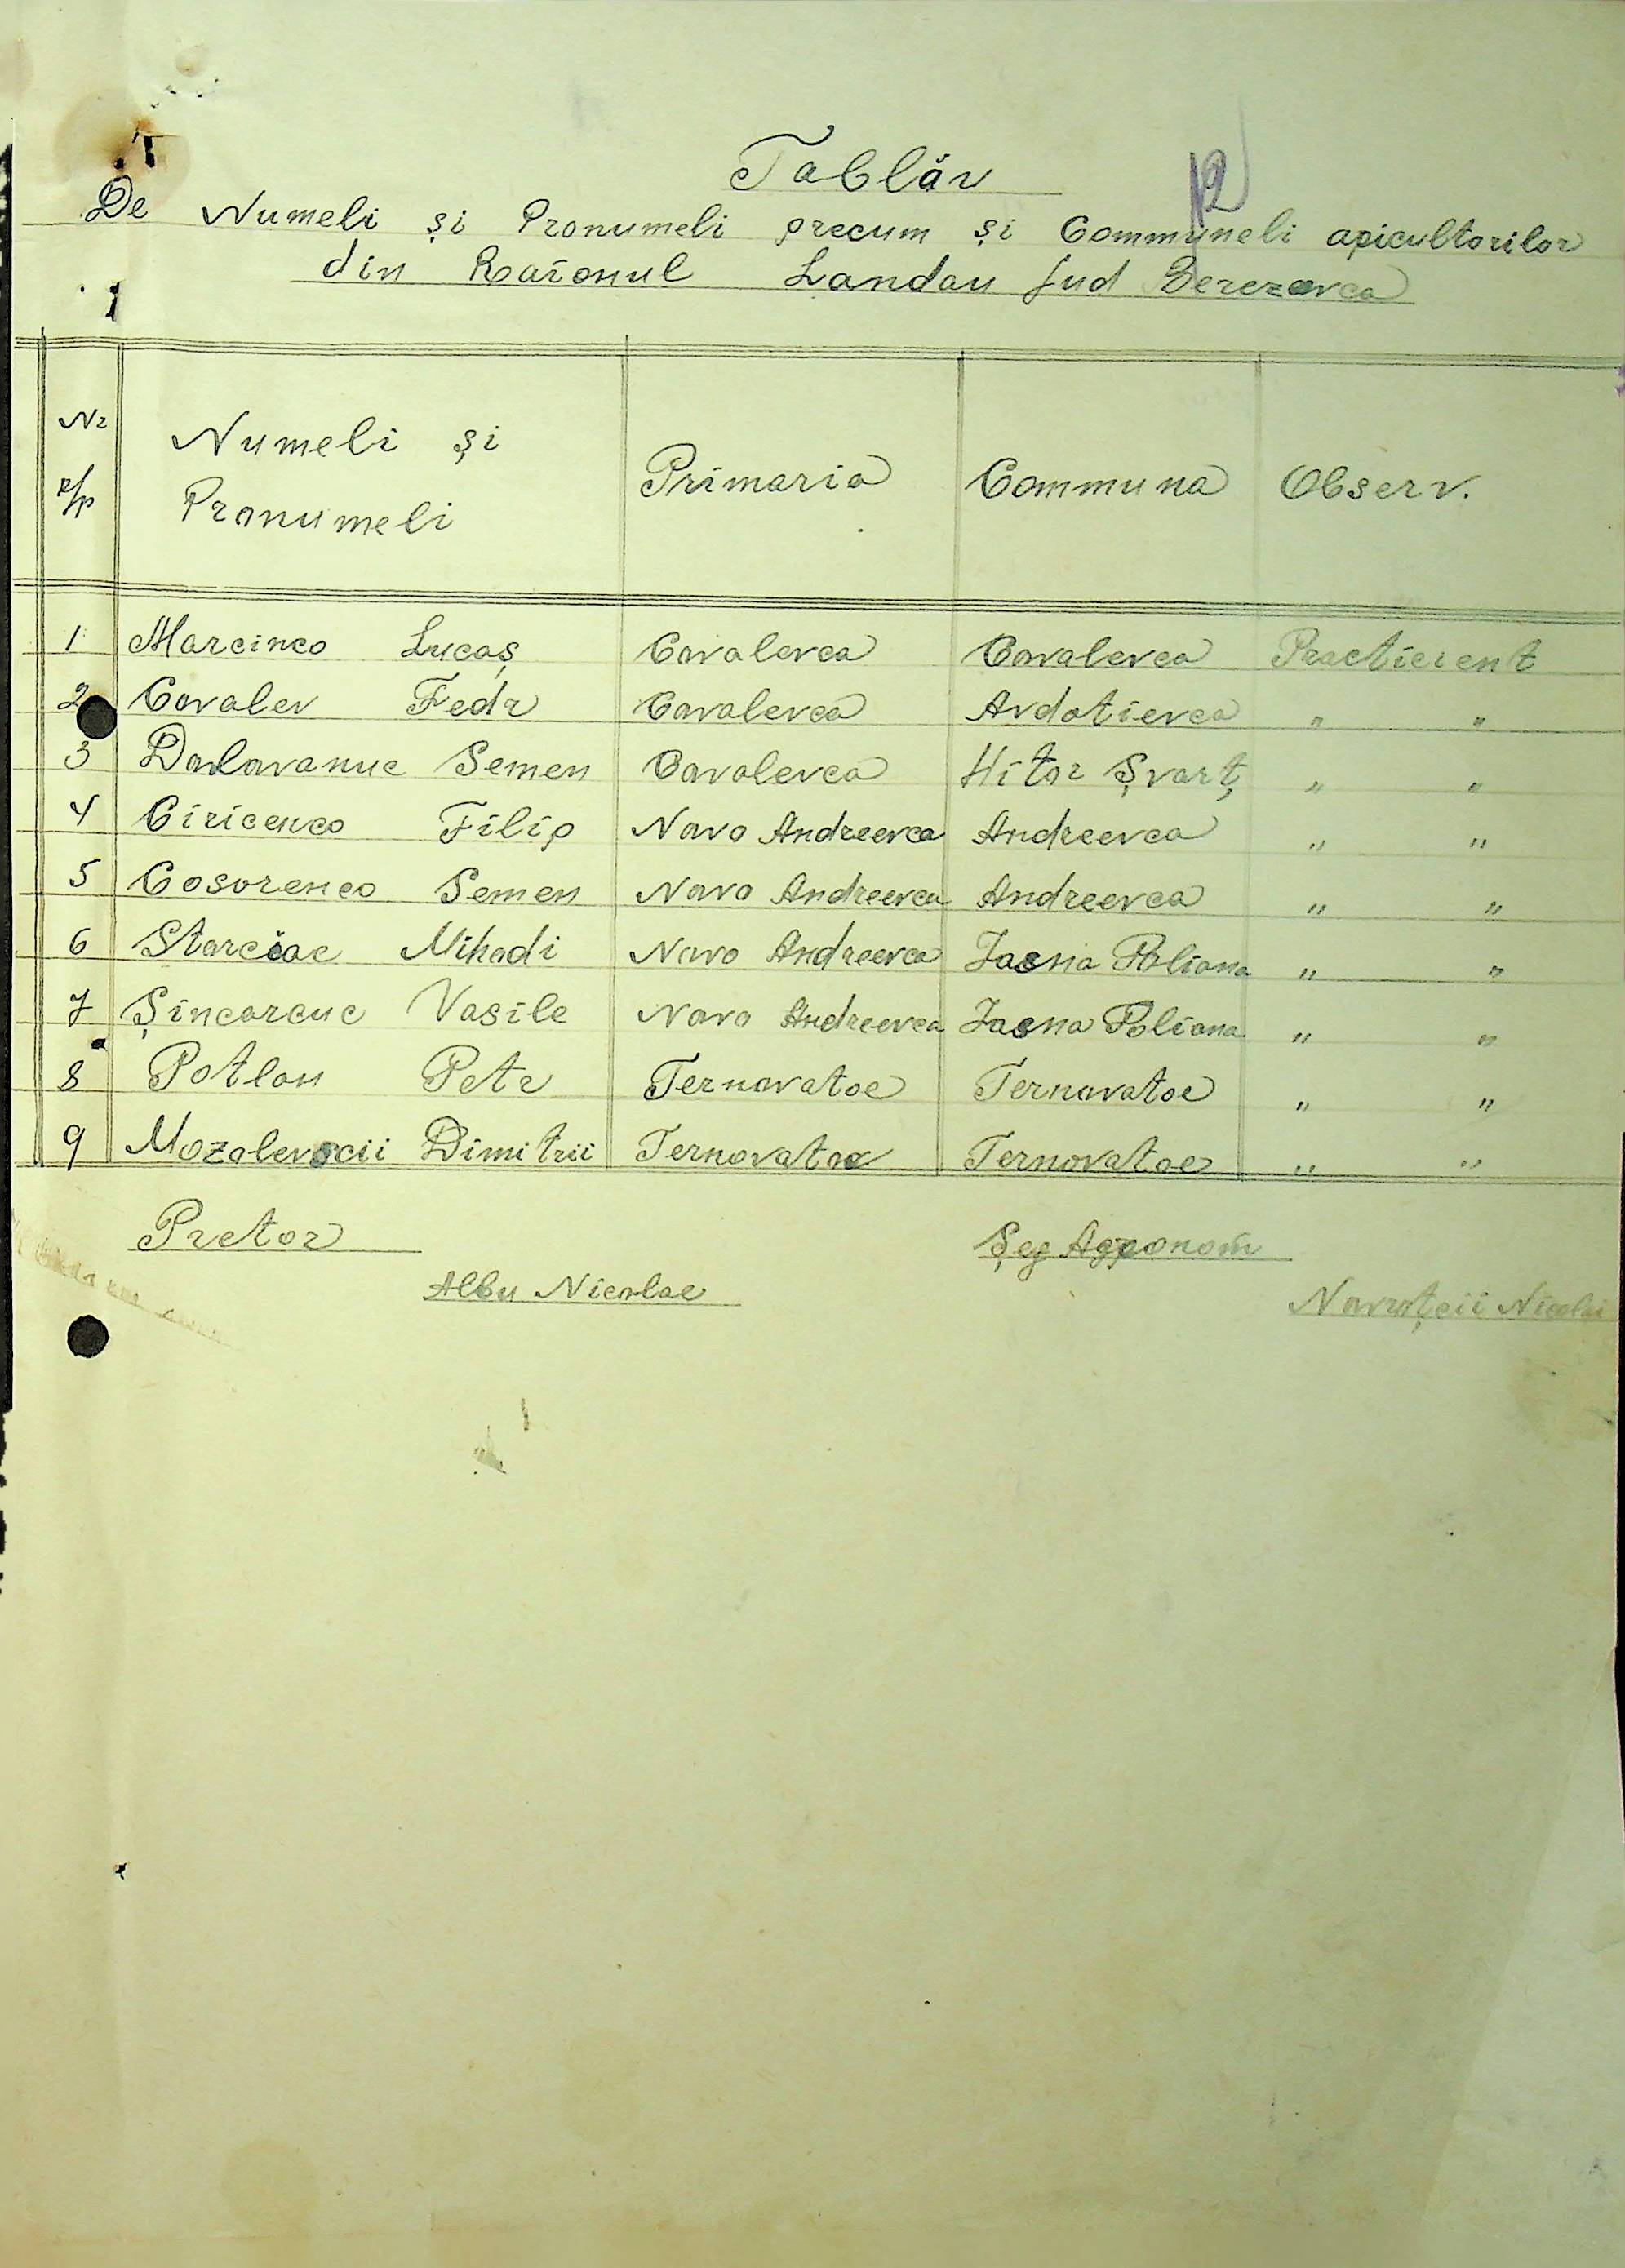 12
Tablău
De Numeli și Pronumeli precum și Communeli apicultorilor
din Raionul Landau Jud Berezovca
Nr p/p Numeli și Pronumeli Primaria Communa Observ.
1 Marcinco Lucaș Covalevca Covalevca Practicient
2 Covalev Fedr Covalevca Avdotievca " "
3 Semen Covalevca Hitor Șvarț " "
4 Ciricenco Filip Novo Andreevca Andreevca " "
5 Cosorenco Semen Novo Andreevca Andreevca " "
6 Starciac Mihadi Novo Andreevca Jasna Poliana " "
7 Șincarcuc Vasile Novo Andreevca Jasna Poliana " "
8 Potlou Petr Ternovatoe Ternovatoe " "
9 Mozolevscii Dimitrii Ternovatoe Ternovatoe " "
Pretor Șef Agronom
Albu Nicolae Nicolai